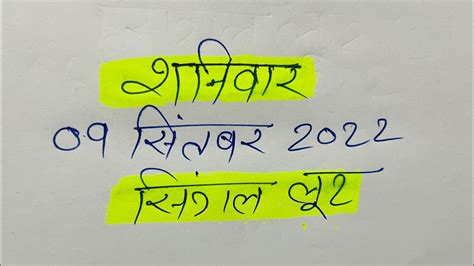 शनिवार
09 सिंतबर 2022
सिंगल लूट